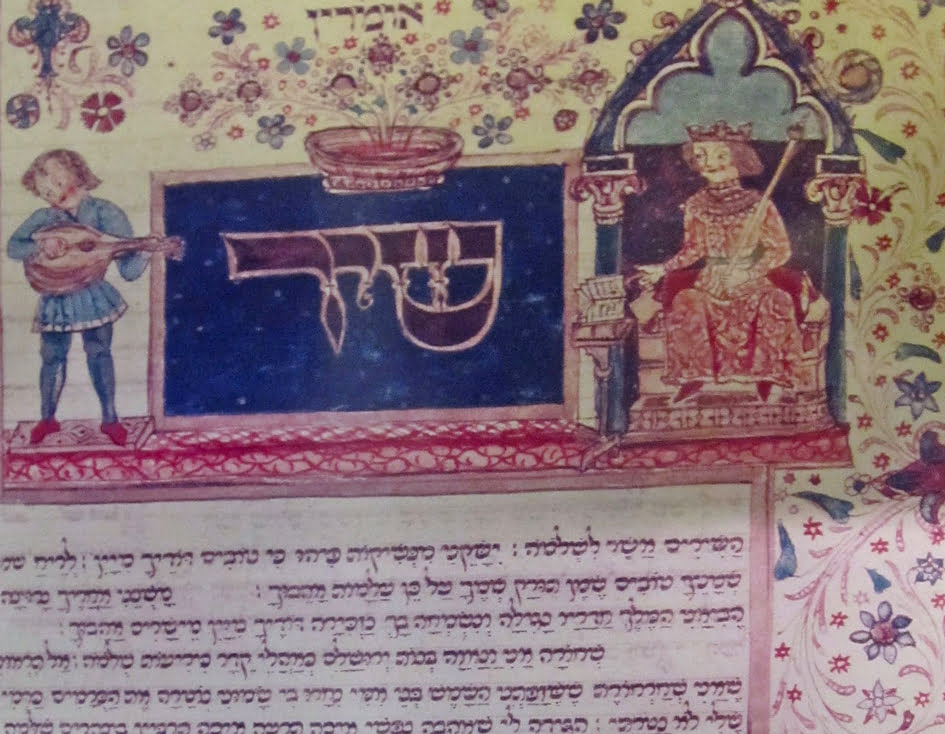 אומרין
שיר
השירים אשר לשלמה : ישקני מנשיקות פיהו כי טובים דודיך מיין : לריח שמ
שמניך טובים שמן תורק שמך על כן עלמות אהבוך : משכני אחריך נרוצה
הביאני המלך חדריו נגילה ונשמחה בך נזכירה דודיך מיין מישרים אהבוך :
שחורה אני ונאוה בנות ירושלם כאהלי קדר כיריעות שלמה : אל תראוני
שאני שחרחורת ששזפתני השמש בני אמי נחרו בי שמוני נוטרה את הכרמים כרמי
שלי לא נטרתי : הגידה לי שאהבה נפשי איכה תרעה איכה תרביץ בצהרים שלמה